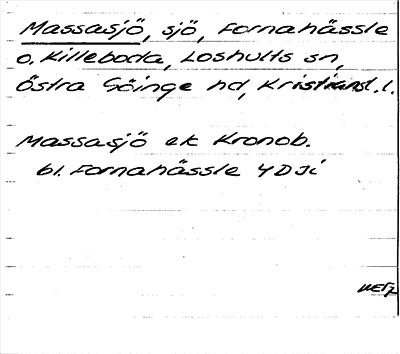 Massasjö, sjö, Fornahässle
o. Killeboda, Loshults sn,
Östra Göinge hd, Kristianst. l.
Massasjö ek Kronob.
bl. Fornahässle 4D5i